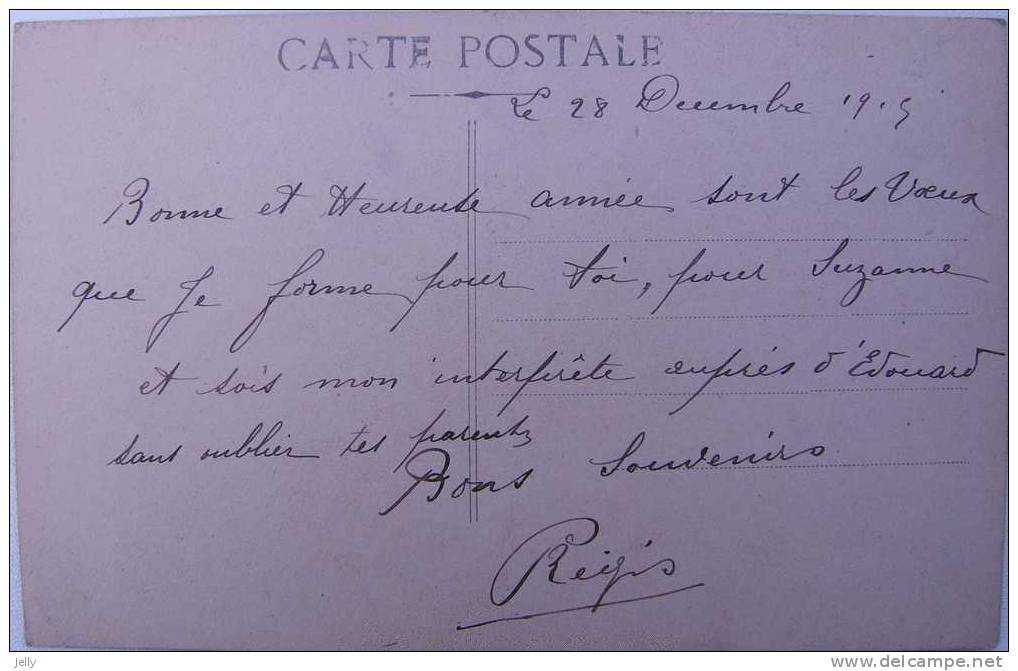 CARTE POSTALE
Le 28 Decembre 1915
Bonne et Heureuse année sont les Vœux
que Je forme pour toi, pour Suzanne
et sois mon interprête auprés d'Edouard
sans oublier tes parents
Bons Souvenirs
Régis
jelly
www.delcampe.net